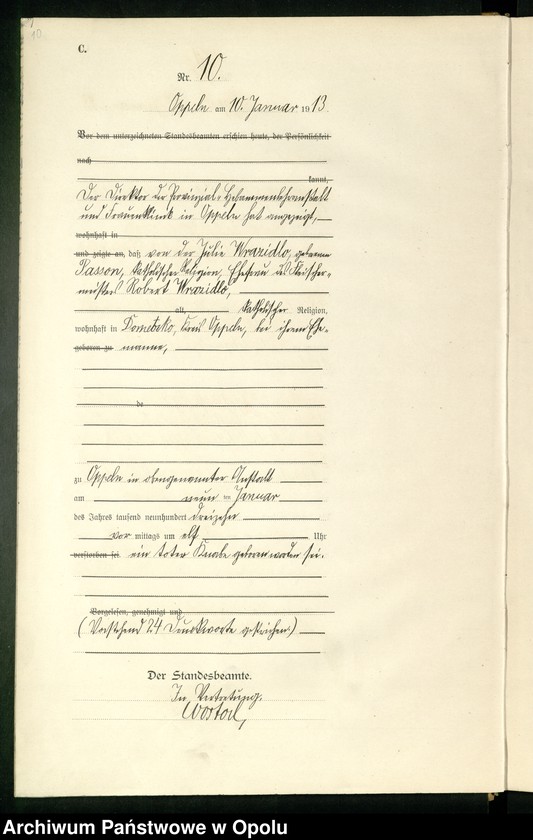 10
C.
Nr. 10.
Oppeln am 10. Januar 1913.
Vor dem unterzeichneten Standesbeamten erschien heute, der Persönlichkeit
nach
kannt,
Der Direktor der Provinzial-Hebammenlehranstalt
und Frauenklinik in Oppeln hat angezeigt,
wohnhaft in
und zeigte an, daß von der Julie Wrazidlo, geborene
Sasson, katholischer Religion, Ehefrau des Fleischer-
meisters Robert Wrazidlo,
alt, katholischer Religion,
wohnhaft in Dometzko, Kreis Oppeln, bei ihrem Ehe-
geboren zu manne,
de
zu Oppeln in obengenannter Anstalt
am neun ten Januar
des Jahres tausend neunhundert dreizehn
vor mittags um elf Uhr
verstorben sei ein toter Knabe geboren worden sei.
Vorgelesen, genehmigt und
(Vorstehend 24 Druckworte gestrichen.)
Der Standesbeamte.
In Vertretung.
Archiwum Państwowe w Opolu